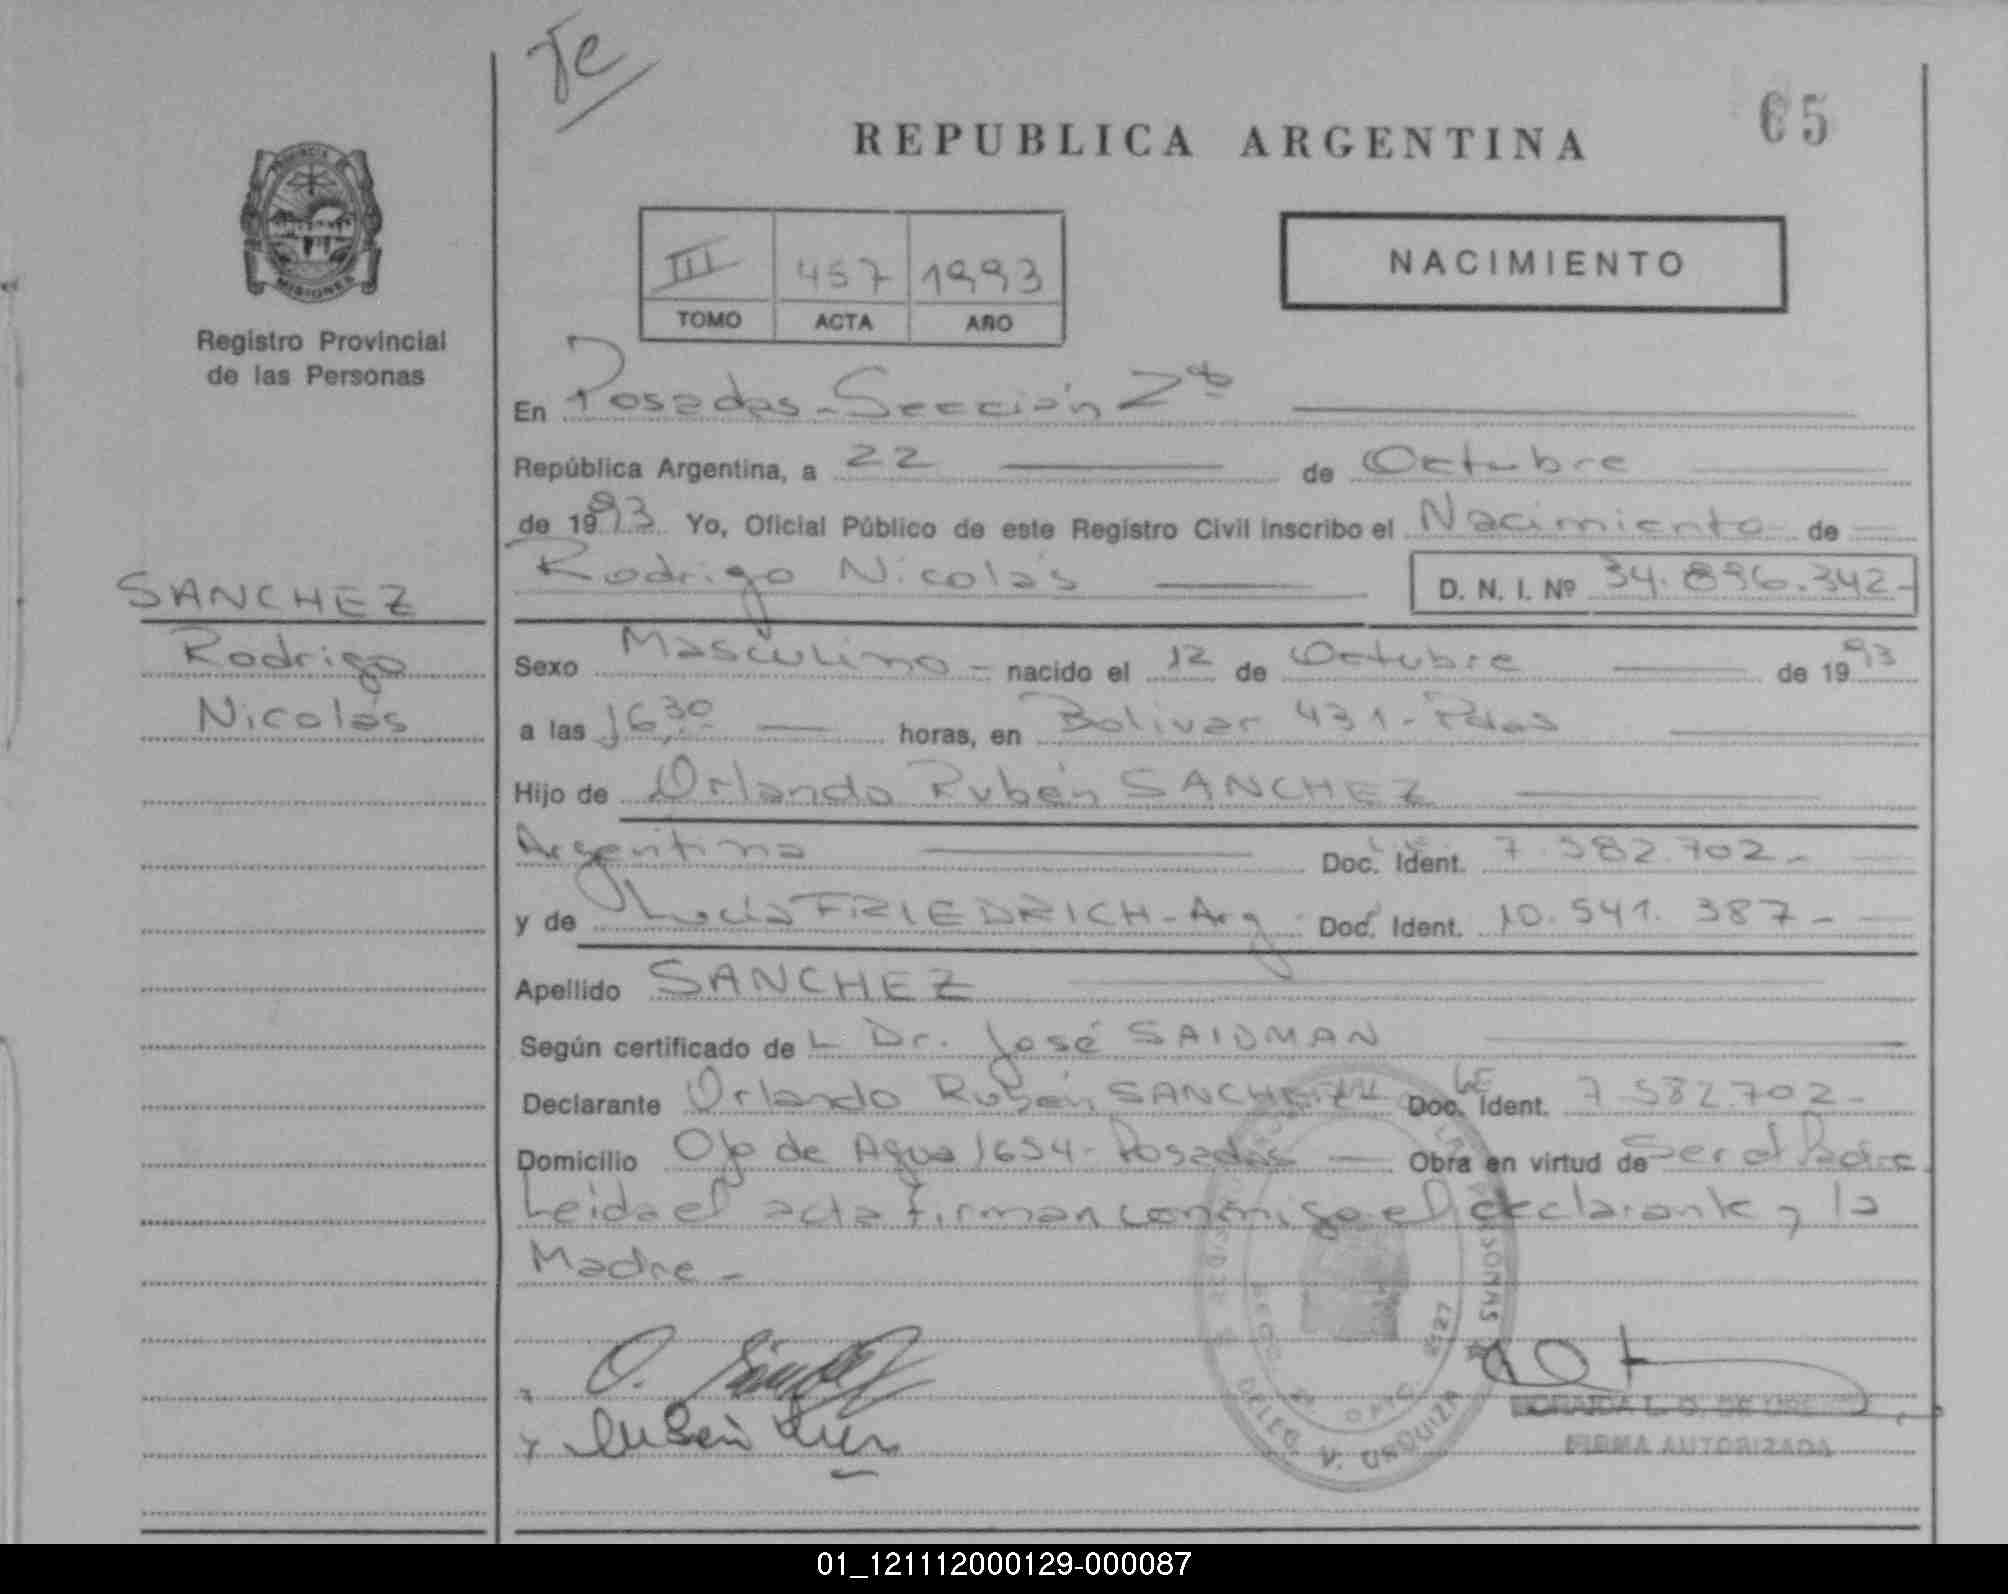 65
REPUBLICA ARGENTINA
III 457 1993
TOMO ACTA AÑO
NACIMIENTO
MISIONES
Registro Provincial
de las Personas
En Posadas - Sección 2ª
República Argentina, a 22 de Octubre
de 1993 Yo, Oficial Público de este Registro Civil inscribo el Nacimiento de
Rodrigo Nicolás D. N. I. Nº 34.896.342-
SANCHEZ
Rodrigo
Nicolás
Sexo Masculino - nacido el 12 de Octubre de 1993
a las 16,30 horas, en Bolivar 431 - Pdas
Hijo de Orlando Rubén SANCHEZ
Argentina Doc. Ident. 7.582.702-
y de Lucía FRIEDRICH - Arg Doc. Ident. 10.541.387-
Apellido SANCHEZ
Según certificado de L Dr. José SAIDMAN
Declarante Orlando Rubén SANCHEZ LE Doc. Ident. 7.582.702-
Domicilio Ojo de Agua 1654 - Posadas Obra en virtud de Ser el Padre
Leida el acta firman conmigo el declarante y la
Madre -
O.
DELEG. V. URQUIZA
FIRMA AUTORIZADA
01_121112000129-000087